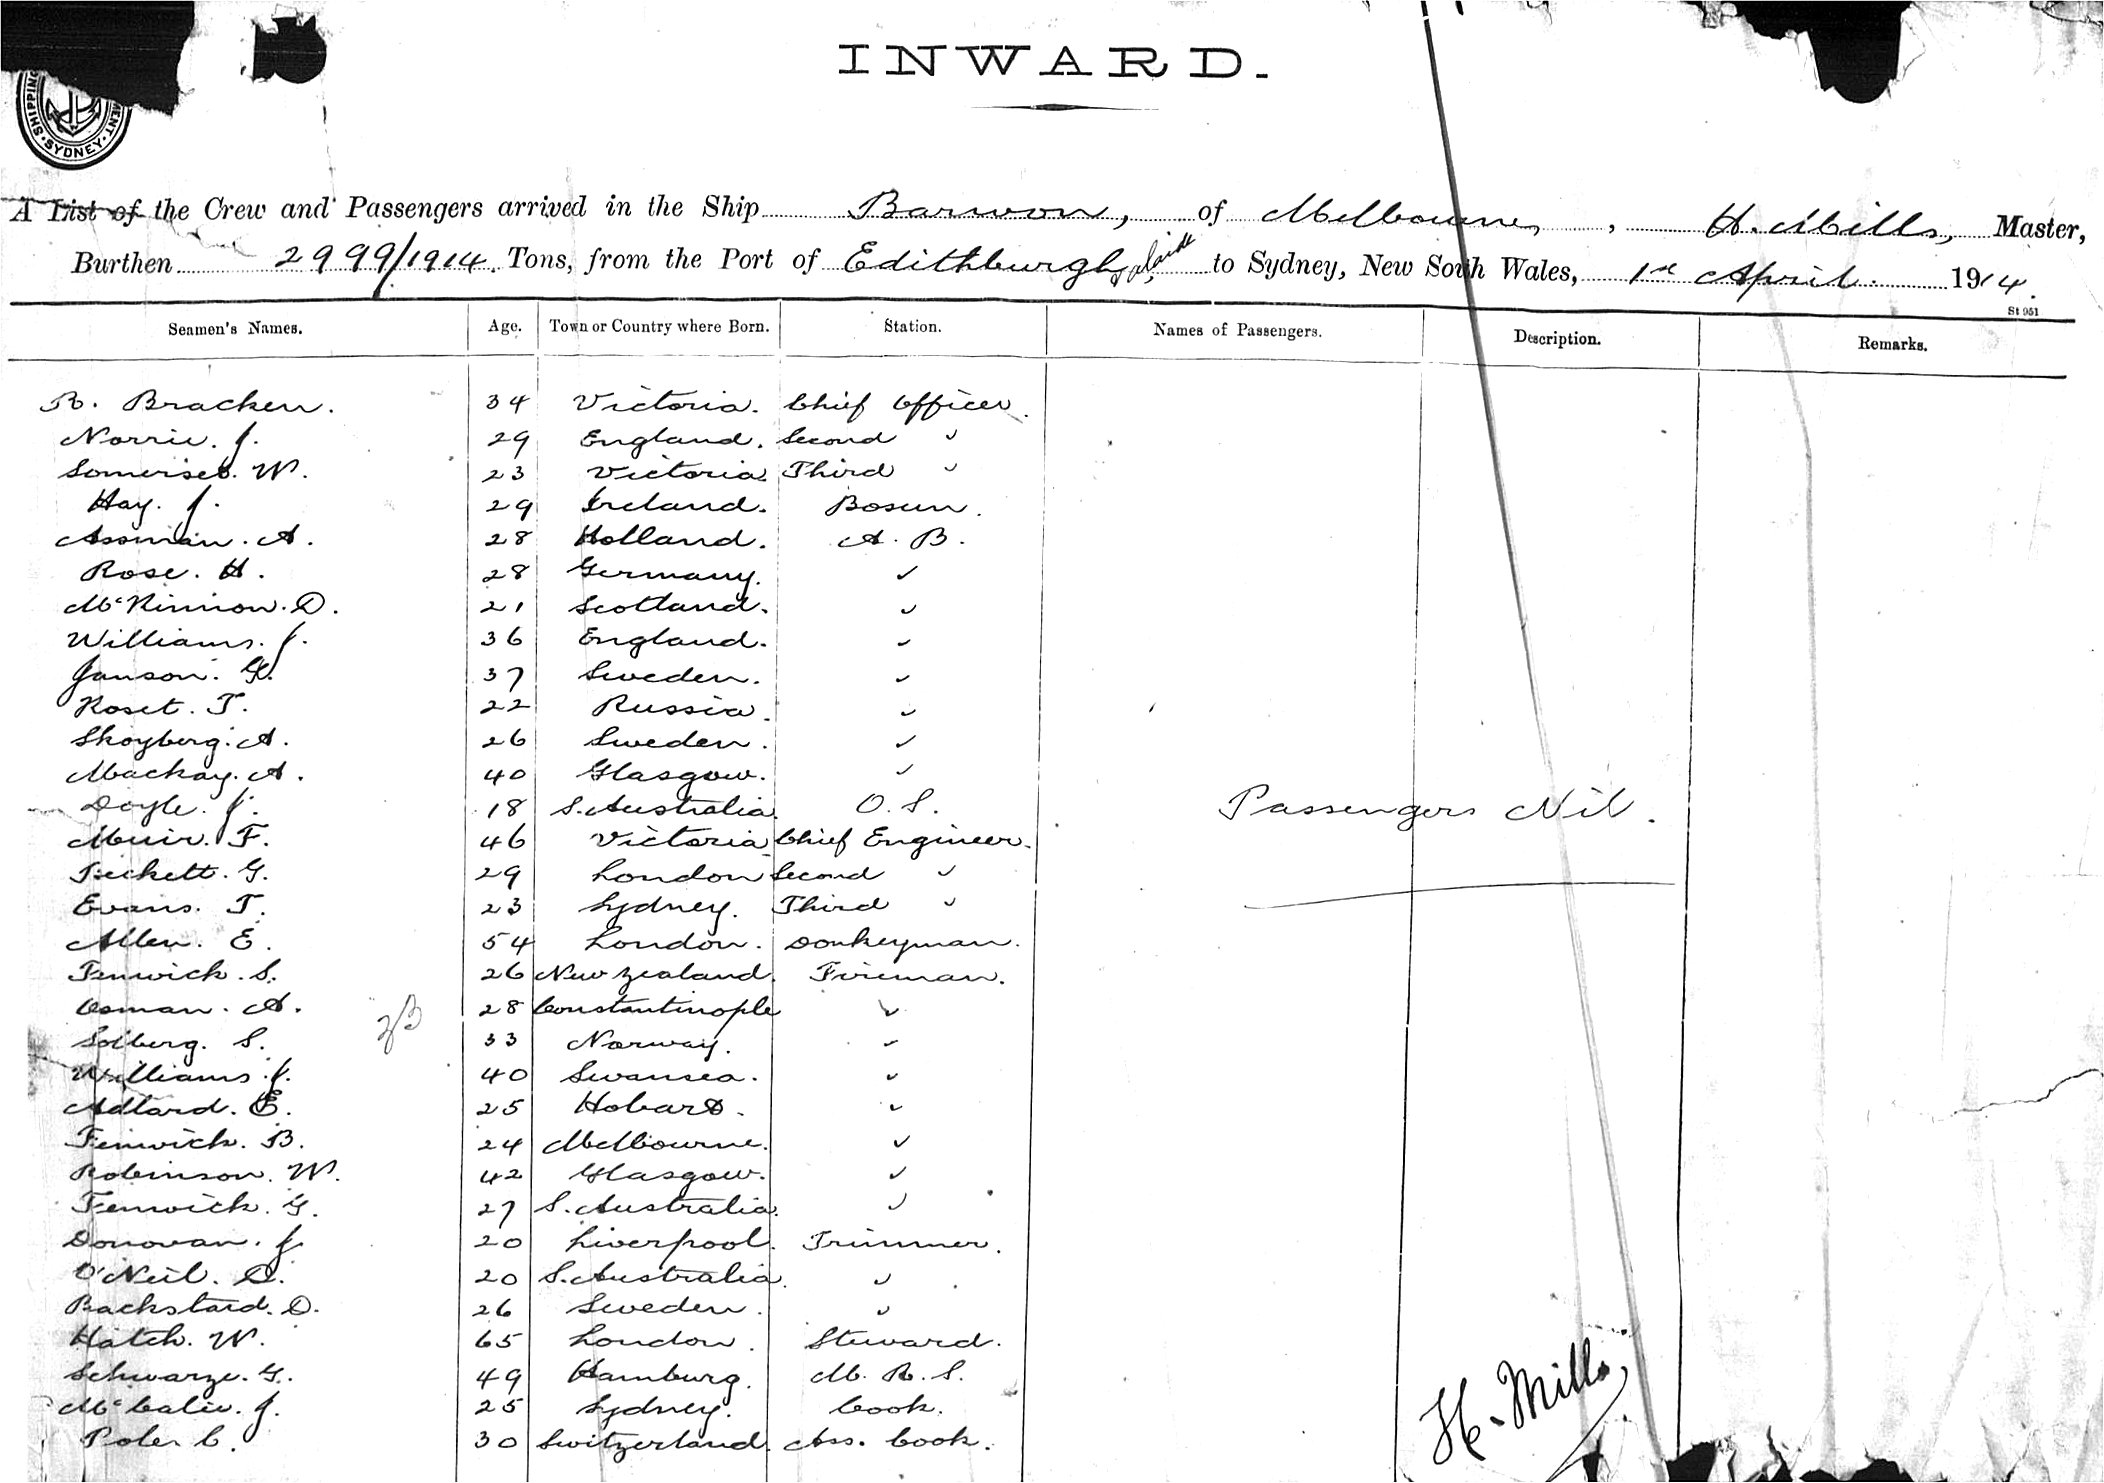 INWARD.
SHIPPING
SYDNEY
A List of the Crew and Passengers arrived in the Ship Barwon, of Melbourne, H. Mills, Master,
Burthen 2999/1914 Tons, from the Port of Edithburgh, to Sydney, New South Wales, 1st April 1914.
St 951
Seamen's Names. Age. Town or Country where Born. Station. Names of Passengers. Description. Remarks.
R. Bracken. 34 Victoria. Chief Officer.
Norrie. J. 29 England. Second "
Somerset. W. 23 Victoria. Third "
Hay. J. 29 Ireland. Bosun.
Assman. A. 28 Holland. A. B.
Rose. H. 28 Germany. "
McKinnon. D. 21 Scotland. "
Williams. J. 36 England. "
Janson. G. 37 Sweden. "
Roset. T. 22 Russia. "
Skoyberg. A. 26 Sweden. "
Mackay. A. 40 Glasgow. "
Doyle. J. 18 S. Australia. O. S.
Passengers Nil.
Muir. F. 46 Victoria Chief Engineer.
Beckett. G. 29 London Second "
Evans. T. 23 Sydney. Third "
Allen. E. 54 London. Donkeyman.
Fenwick. S. 26 New Zealand. Fireman.
Osman. A. 28 Constantinople "
Solberg. S. 33 Norway. "
Williams. J. 40 Swansea. "
Adlard. E. 25 Hobart. "
Fenwick. B. 24 Melbourne. "
Robinson. W. 42 Glasgow. "
Fenwick. G. 27 S. Australia. "
Donovan. J. 20 Liverpool. Trimmer.
O'Neil. D. 20 S. Australia. "
Backstard. D. 26 Sweden. "
Hatch. W. 65 London. Steward.
Schwarze. G. 49 Hamburg. M. R. S.
McCalie. J. 25 Sydney. Cook.
Poler C. 30 Switzerland. Ass. Cook.
H. Mills